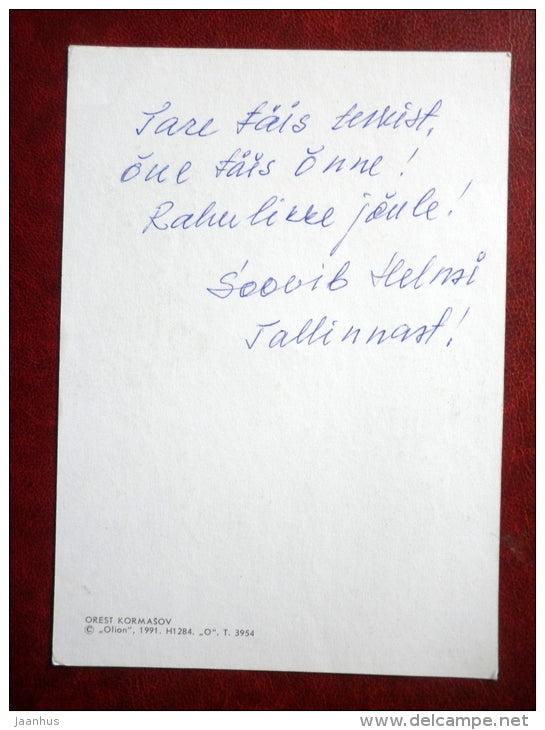 Tare täis tervist,
õue täis õnne!
Rahulikke jõule!
Soovib Helmi
Tallinnast!
OREST KORMAŠOV
© „Olion", 1991. H1284. „O", T. 3954
jaanhus
www.delcampe.net